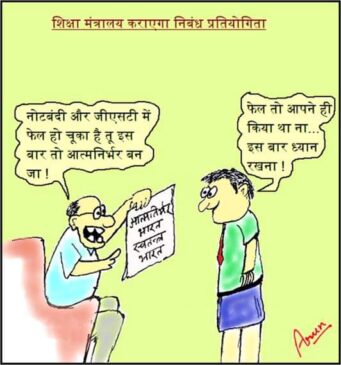 शिक्षा मंत्रालय कराएगा निबंध प्रतियोगिता
नोटबंदी और जीएसटी में
फेल हो चूका है तू इस
बार तो आत्मनिर्भर बन
जा !
फेल तो आपने ही
किया था ना...
इस बार ध्यान
रखना !
आत्मनिर्भर
भारत
स्वतन्त्र
भारत